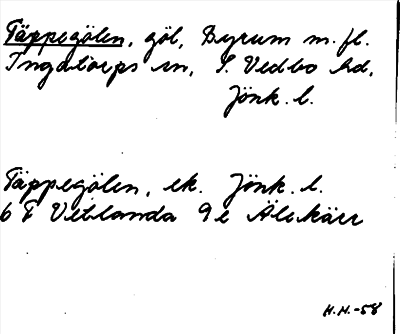 Täppegölen, göl, Byrum m. fl.
Ingatorps sn, S. Vedbo hd,
Jönk. l.
Täppegölen, ek. Jönk. l.
6 F Vetlanda 9e Älekärr
H.H.-58